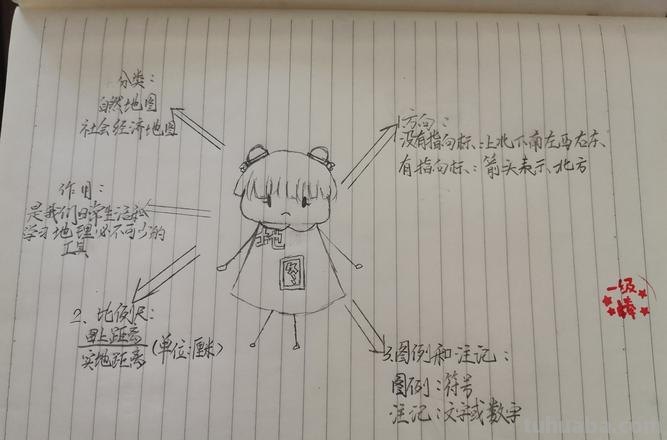 分类：
自然地图
社会经济地图
作用：
是我们日常生活和
学习地理必不可少的
工具
2、比例尺：
图上距离
实地距离
(单位:厘米)
1.方向：
没有指向标：上北下南左西右东
有指向标：箭头表示北方
地
图
3.图例和注记：
图例：符号
注记：文字或数字
一级
棒
tuhuaba.com